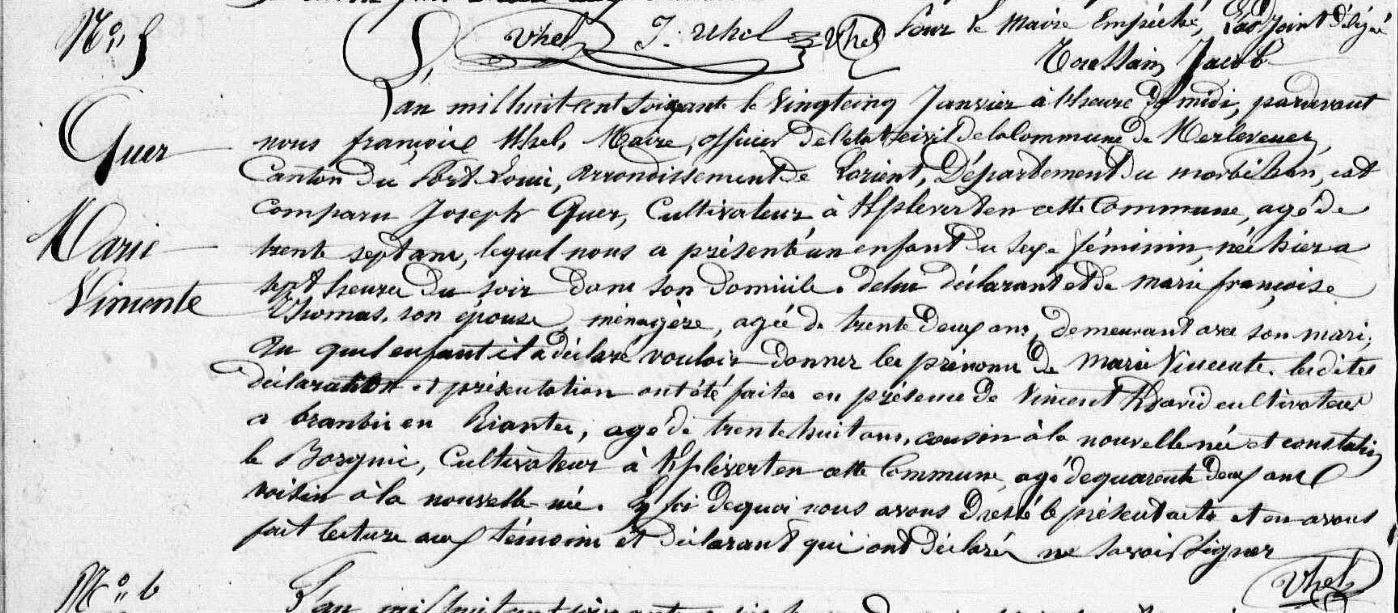 N° 5
Uhel J. Uhel Uhel Pour le Maire Empéché, L'adjoint délégué
Toussain Jacob
L'an mil huit cent soixante le vingt cinq Janvier à l'heure de midi, pardevant
Quer
nous françois Uhel, Maire, officier de l'etat civil de la Commune de Merlevenez,
Canton du Port Louis, arrondissement de Lorient, Département du morbihan, est
Marie
comparu Joseph Quer, Cultivateur à en cette Commune, agé de
trente sept ans, lequel nous a présenté un enfant du sexe féminin, née hier a
Vincente
sept heures du soir dans son domicile. de lui déclarant et de marie françoise
Thomas, son épouse ménagère, agée de trente deux ans, demeurant avec son mari,
Au quel enfant il a déclaré vouloir donner les prénoms de Marie Vincente. les dites
déclaration et présentation ont été faites en présence de Vincent cultivateur
a en Riantec, agé de trente huit ans, cousin à la nouvelle née et constatin
le Bosquic, Cultivateur à en cette Commune, agé de quarente deux ans
voisin à la nouvelle née. En foi de quoi nous avons dressé le présent acte et en avons
fait lecture aux témoins et déclarant qui ont déclaré ne savoir signer
Uhel
N° 6
L'an mil huit cent soixante